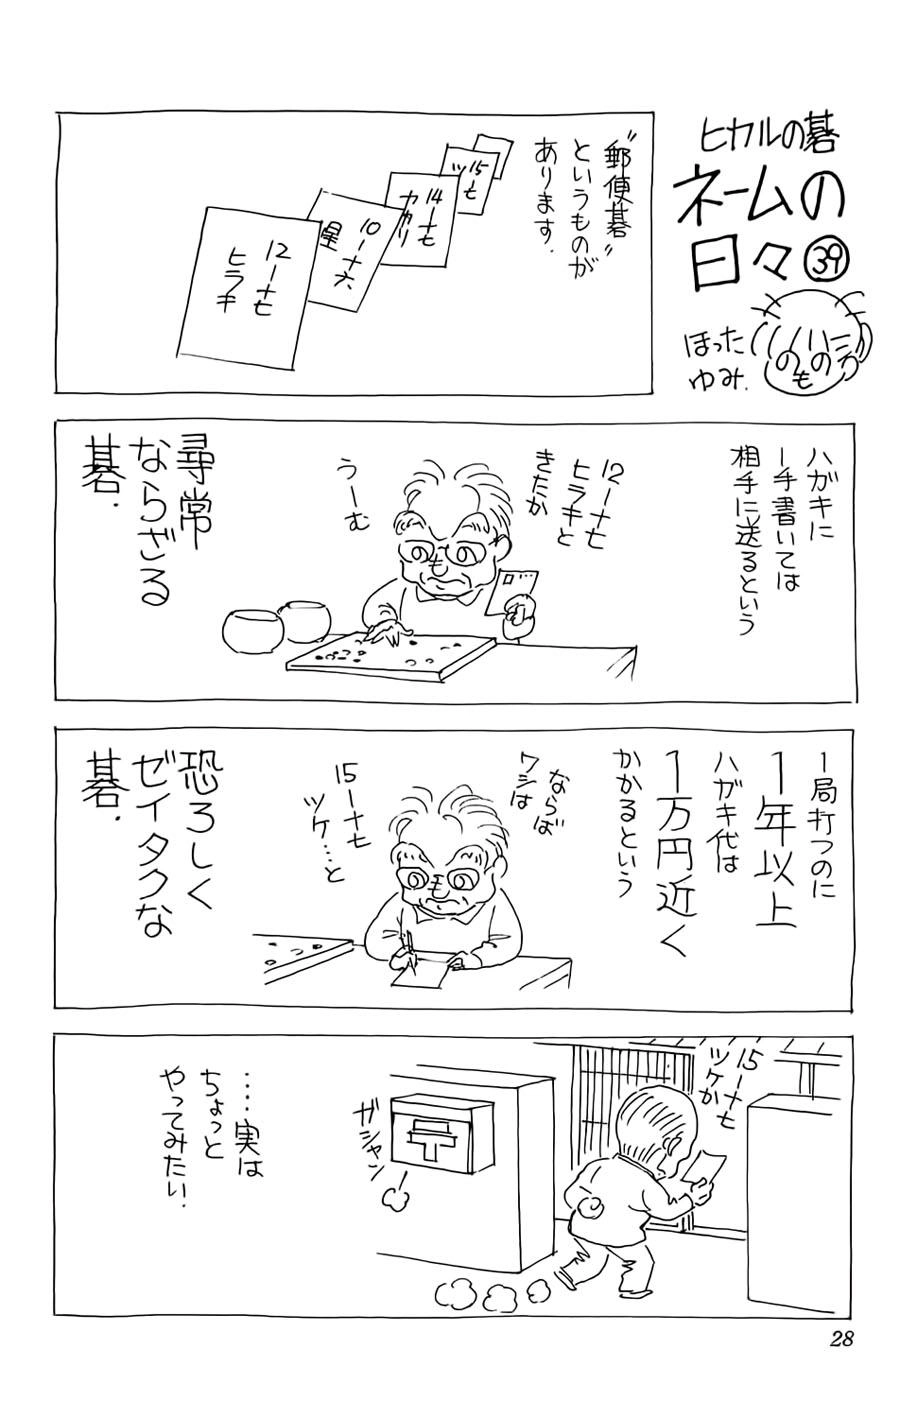 ヒカルの碁
ネームの
日々㊴
ほった
ゆみ.
へのへのもへじ
"郵便碁"
というものが
あります.
15ー七
ツ
14ー十七
カカリ
10ー十六
星
12ー十七
ヒラキ
ハガキに
一手書いては
相手に送るという
12ー十七
ヒラキと
きたか
うーむ
尋常
ならざる
碁.
1局打つのに
1年以上
ハガキ代は
1万円近く
かかるという
ならば
ワシは
15ー十七
ツケ…と
恐ろしく
ゼイタクな
碁.
15ー十七
ツケか
ガシャン
……実は
ちょっと
やってみたい.
28